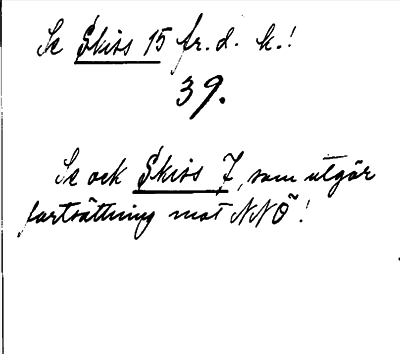 Se Skiss 15 fr. d. k.!
39.
Se ock Skiss 7, som utgör
fortsättning mot NNÖ!